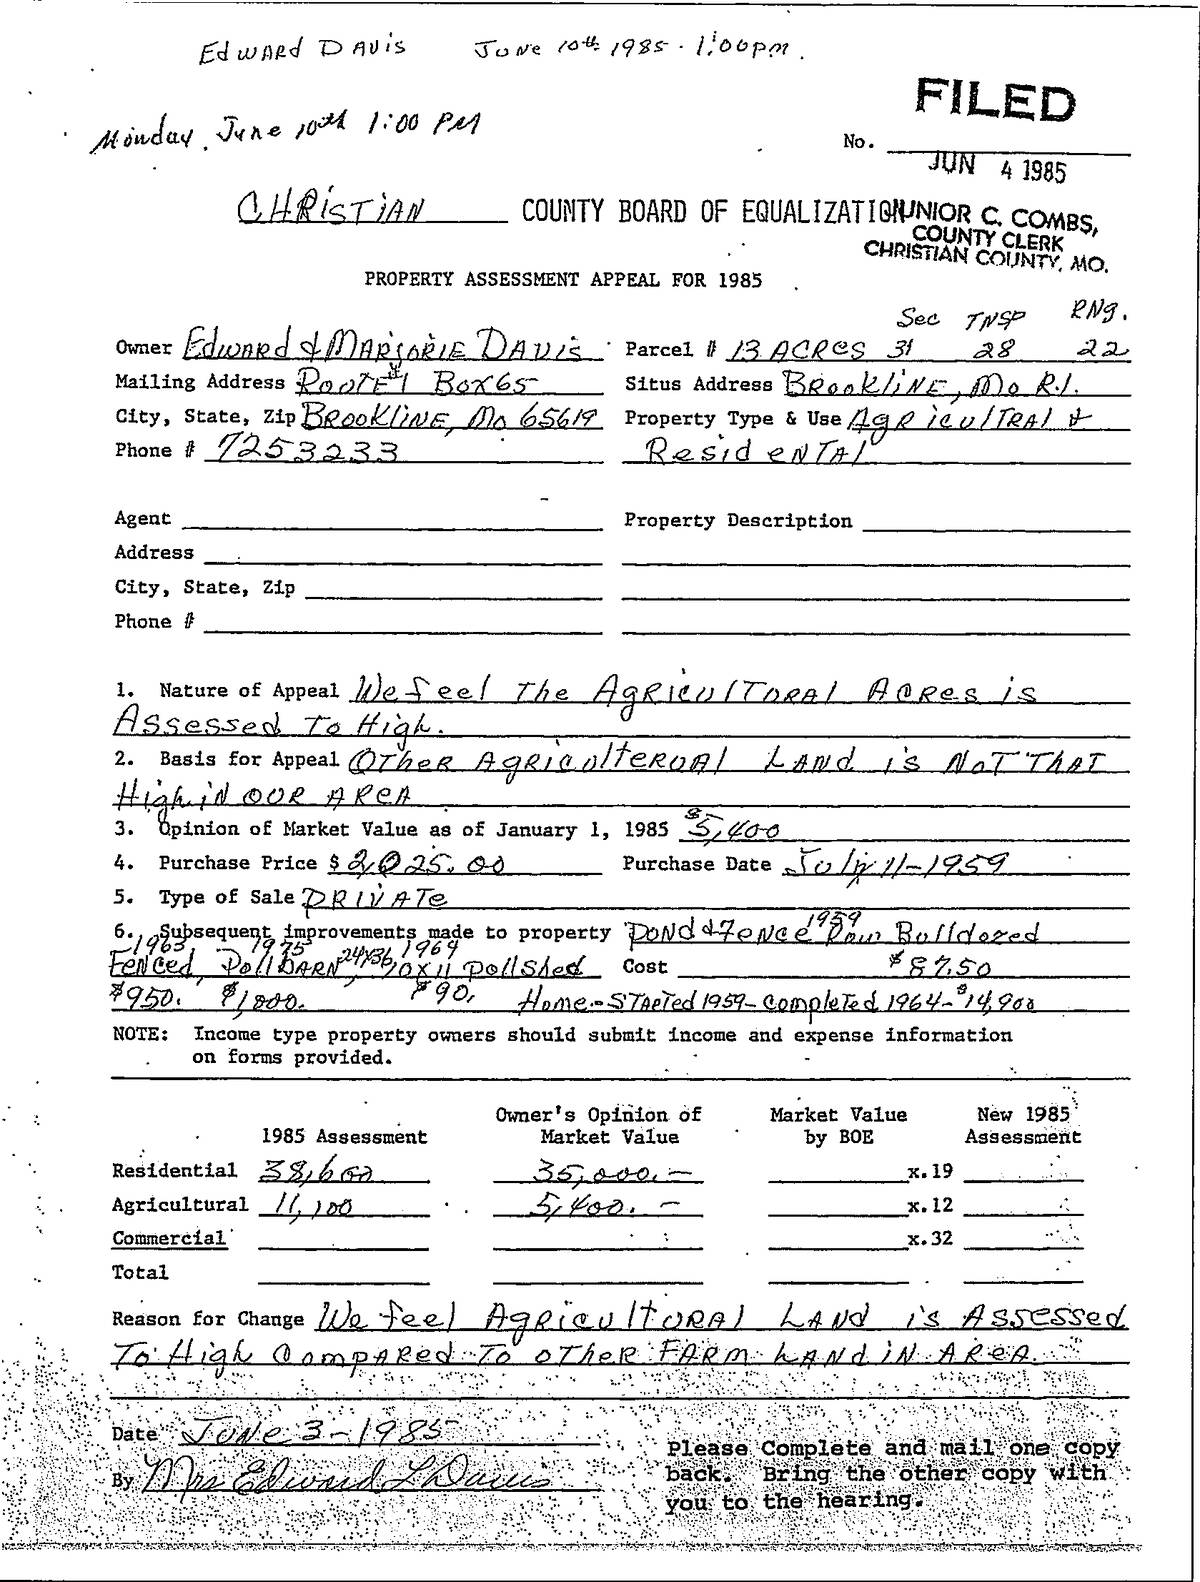 Edward Davis June 10th 1985 · 1:00pm.
FILED
Monday, June 10th 1:00 PM
No.
JUN 4 1985
CHRISTIAN COUNTY BOARD OF EQUALIZATION
JUNIOR C. COMBS,
COUNTY CLERK
CHRISTIAN COUNTY, MO.
PROPERTY ASSESSMENT APPEAL FOR 1985
Sec TNSP RNg.
Owner Edward & Marjorie Davis Parcel # 13 Acres 31 28 22
Mailing Address Route #1 Box 65 Situs Address Brookline, Mo R.1.
City, State, Zip Brookline, Mo 65619 Property Type & Use Agricultral &
Phone # 7253233 Residental
Agent Property Description
Address
City, State, Zip
Phone #
1. Nature of Appeal We feel The Agricultural Acres is
Assessed To High.
2. Basis for Appeal Other Agriculterual Land is Not That
High in our Area
3. Opinion of Market Value as of January 1, 1985 $5,400
4. Purchase Price $ 2,025.00 Purchase Date July 11-1959
5. Type of Sale Private
6. Subsequent improvements made to property Pond & Fence Row Bulldozed 1959
1963 1975 24x36 1964
Fenced, PollBarn, 10x11 Pollshed Cost $87.50
$950. $1,000. $90. Home-Started 1959-Completed 1964-$14,900
NOTE: Income type property owners should submit income and expense information
on forms provided.
Owner's Opinion of Market Value New 1985
1985 Assessment Market Value by BOE Assessment
Residential 38,600 35,000.- x.19
Agricultural 11,100 5,400.- x.12
Commercial x.32
Total
Reason for Change We feel Agricultural Land is Assessed
To High Compared To other Farm Land in Area.
Date June 3-1985
By Mrs Edward L Davis
Please Complete and mail one copy
back. Bring the other copy with
you to the hearing.